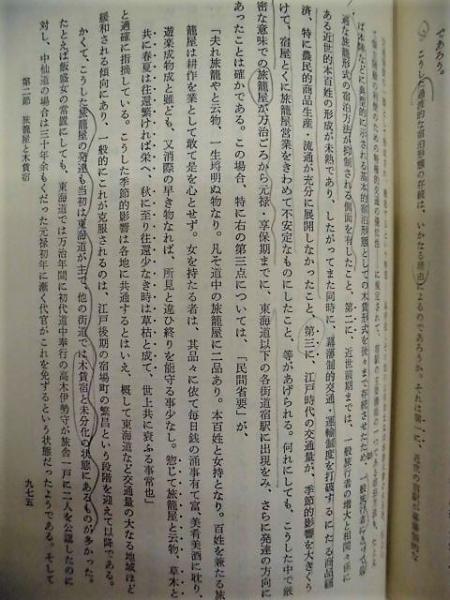 であろう。
こうした過渡的な宿泊形態の存続は、いかなる理由によるのであろうか。それは第一に、近世の宿駅が幕藩制的な
過な旅籠形式の宿泊方法が抑制される側面を有したこと、第二に、近世前期までは、一般旅行者の増大と相関々係に
ある近世的本百姓の形成が未熟であり、したがってまた同時に、幕藩制的交通・運輸制度を打破するにたる商品経
済、特に農民的商品生産・流通が充分に展開しなかったこと、第三に、江戸時代の交通量が、季節的影響を大きくう
けて、宿屋とくに旅籠屋営業をきわめて不安定なものにしたこと、等があげられる。何れにしても、こうした中で厳
密な意味での旅籠屋が万治ごろから元禄・享保期までに、東海道以下の各街道宿駅に出現をみ、さらに発達の方向に
あったことは確かである。この場合、特に右の第三点については、「民間省要」が、
「夫れ旅籠やと云物、一生埒明ぬ物なり。凡そ道中の旅籠屋に二品あり。本百姓と女持となり。百姓を兼たる旅
籠屋は耕作を業として敢て是を心とせず。女を持たる者は、其品々に依て毎日銭の涌事有て富、美肴美酒に耽り、
遊楽成物成と雖ども、又消際の早き物なれば、所見と違ひ終りを能守る事少なし。惣じて旅籠屋と云物、草木と
共に春夏は往還繁ければ栄へ、秋に至り往還少なき時は草枯と成て、世上共に衰ふる事常也」
と適確に指摘している。こうした季節的影響は各地に共通するとはいえ、概して東海道など交通量の大なる地域ほど
緩和される傾向にあり、一般的にこれが克服されるのは、江戸後期の宿場町の繁昌という段階を迎えて以降である。
かくて、こうした旅籠屋の発達も当初は東海道が主で、他の街道では木賃宿と未分化の状態にあるものが多かった。
たとえば飯盛女の常置にしても、東海道では万治年間に初代道中奉行の高木伊勢守が旅舎一戸に二人を公認したのに
対し、中仙道の場合は三十年余もくだった元禄初年に漸く代官がこれを免ずるという状態だったようである。そして
第二節 旅籠屋と木賃宿
九七五